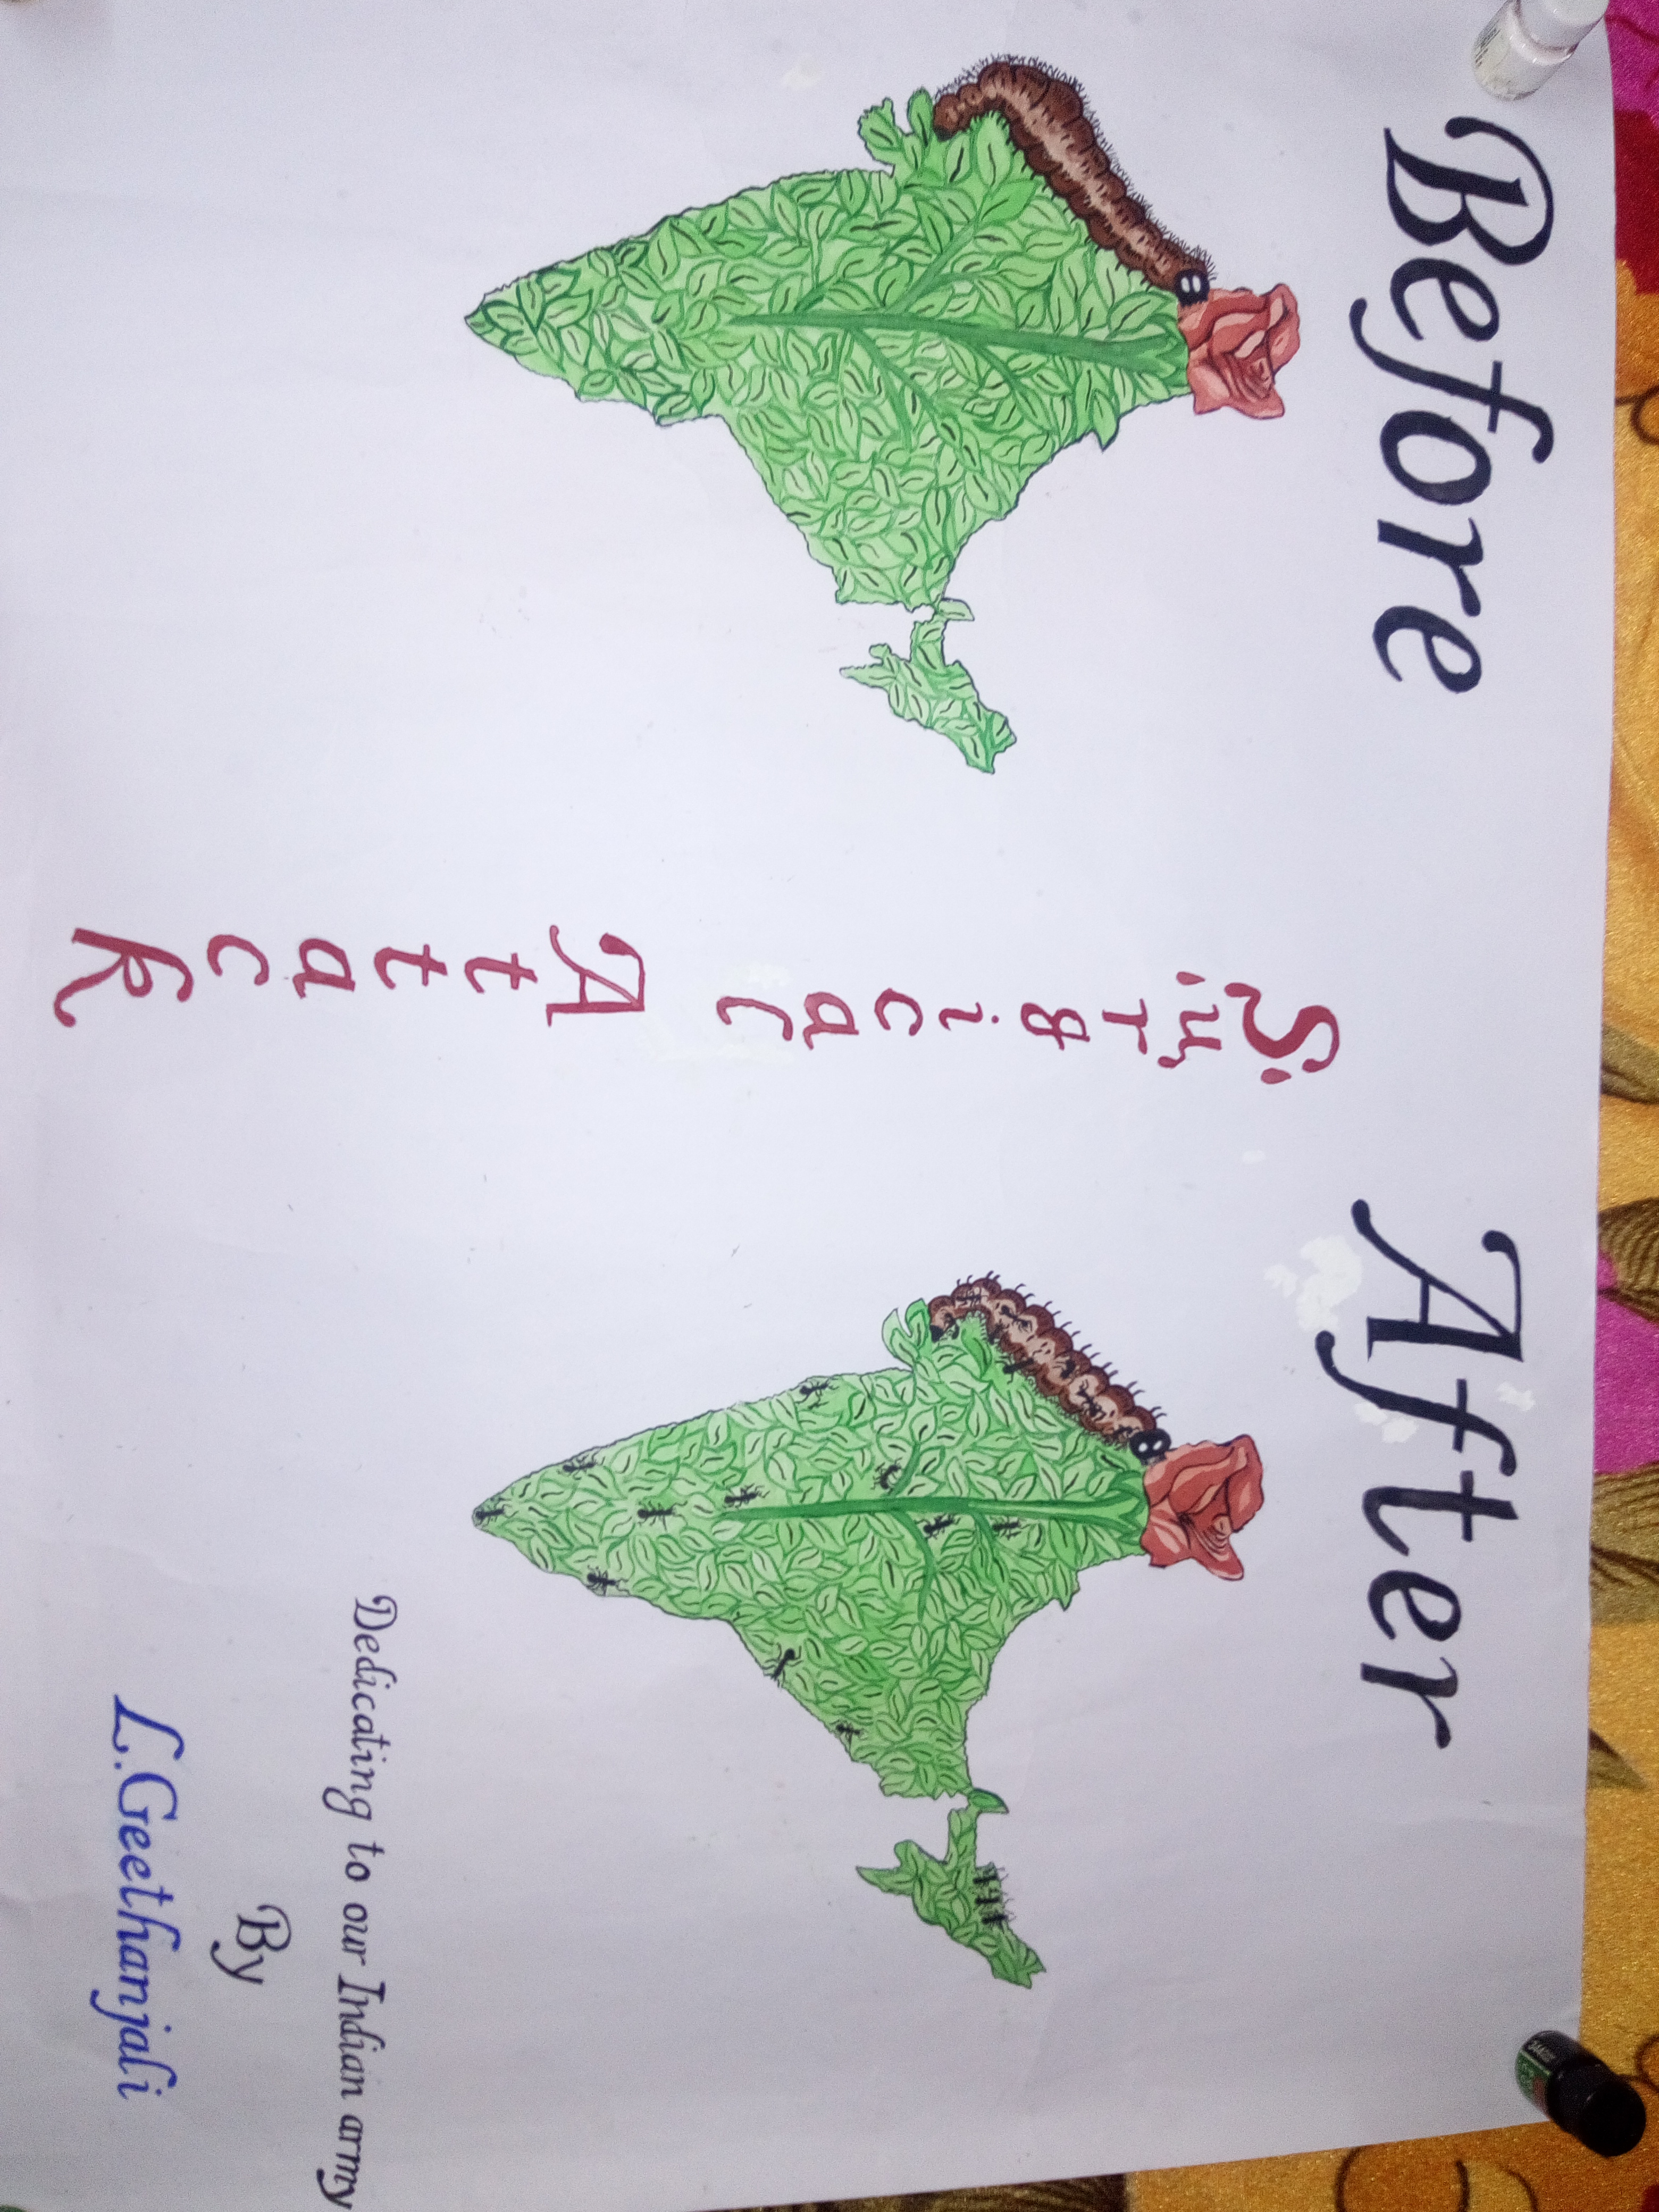 Before
After
Surgical
Attack
Dedicating to our Indian army
By
L.Geethanjali